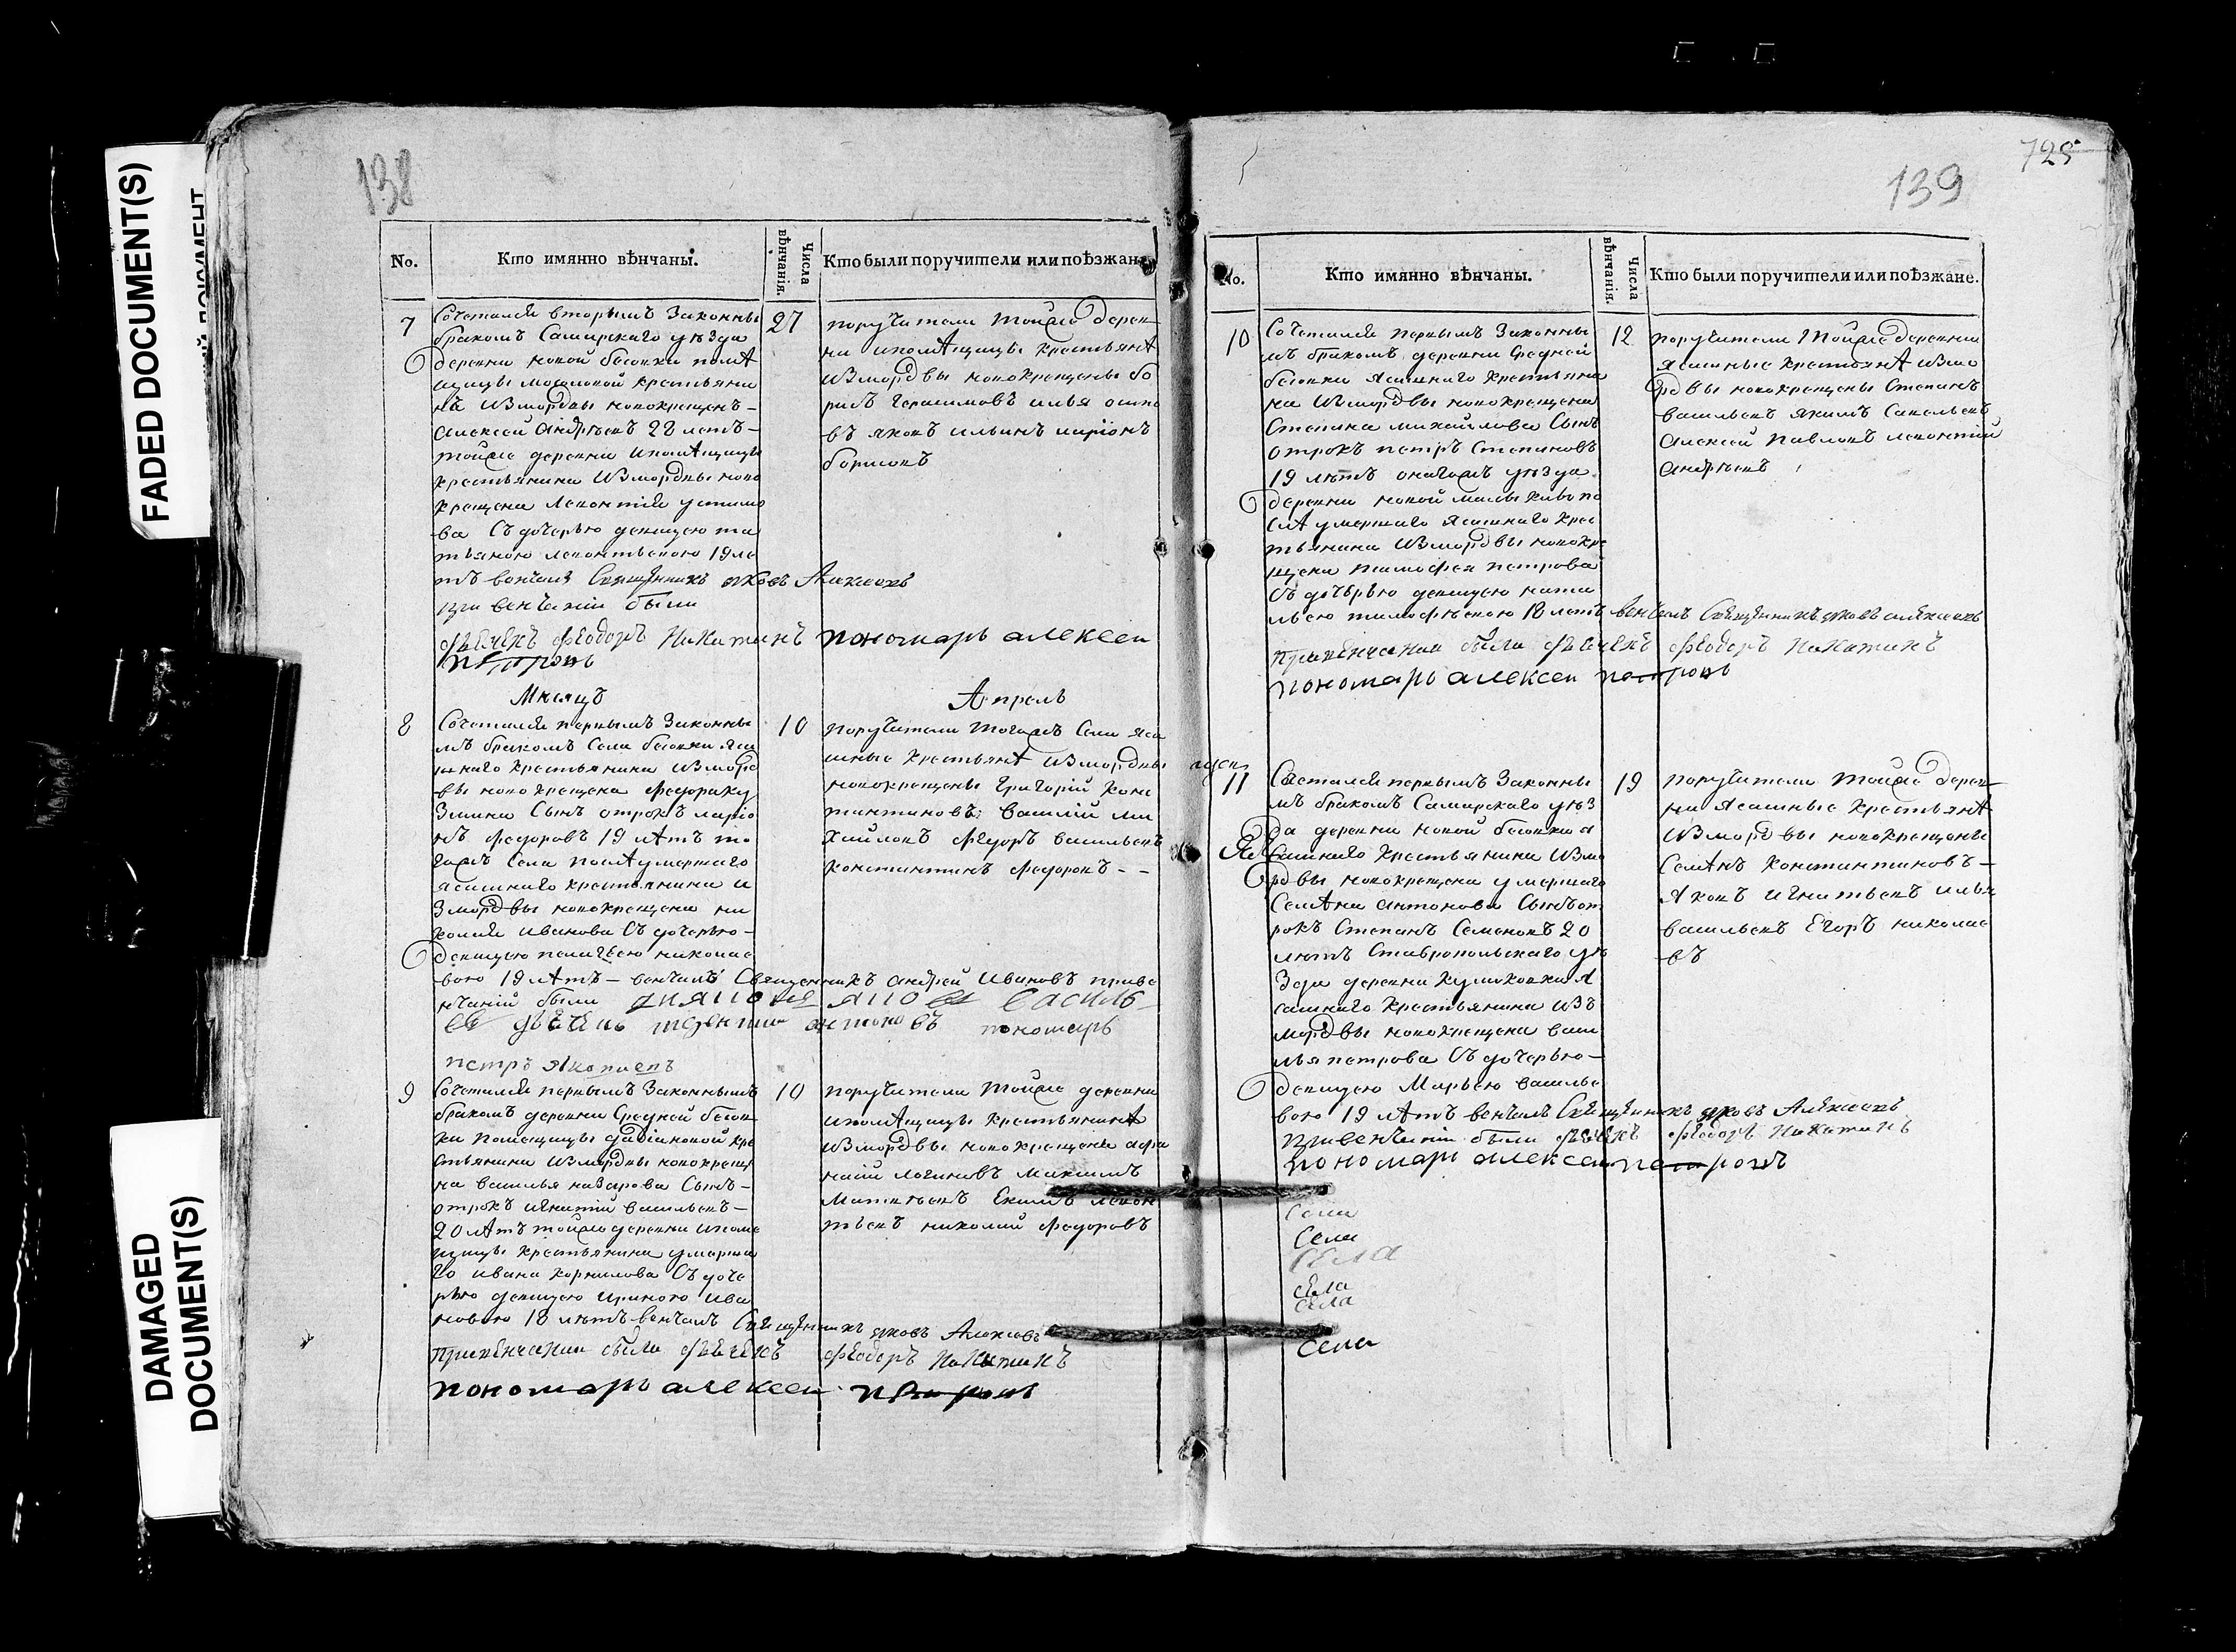 FADED DOCUMENT(S)
DAMAGED
DOCUMENT(S)
138
No.
Кто имянно вѣнчаны.
Числа вѣнчанія.
Кто были поручители или поѣзжане
7
27
Сочетался вторымъ Законны
бракомъ Самарскаго уѣзда
деревни новой бесовки помѣ
щицы крестьяни
нъ измордвы новокрещенъ –
Алексей Андрѣевъ 28 летъ –
тойже деревни ипомѣщицы
крестьянина Измордвы ново
крещена Леонтія устимо
ва Съ дочерью девицею та
тьяною леонтьевою 19 ле
тъ венчалъ Священникъ яковъ Алексеевъ
при венчаніи были
дьячекъ Феодоръ Никитинъ пономарь алексеи
петровъ
поручители тойже дерев
ни ипомѣщицы крестьянѣ
Измордвы новокрещены бо
рисъ Герасимовъ илья осипо
въ яковъ ильинъ ларіонъ
борисовъ
Мѣсяцъ
Апрель
8
10
Сочетался первымъ Законны
мъ бракомъ Села бесовки яса
шнаго крестьянина Изморд
вы новокрещена Федора ку
Змина Сынъ отрокъ ларіо
нъ Федоровъ 19 лѣтъ то
гожъ Села послѣ умершаго
ясашнаго крестьянина и
Змордвы новокрещена ни
колая иванова Съ дочерью –
девицею пелагеею николае
вою 19 лѣтъ – венчалъ Священникъ андрей Ивановъ приве
нчаніи были василь
евъ дьячекъ терентии антоновъ пономарь
петръ
поручители тогожъ Села яса
шные крестьянѣ Измордвы
новокрещены Григорій конс
тантиновъ василій ми
хайловъ Федоръ васильевъ
константинъ Федоровъ – –
9
10
Сочетался первымъ Законнымъ
бракомъ деревни Средней бесов
ки помещицы кре
стьянина Измордвы новокреще
на василья назарова Сынъ –
отрокъ игнатій васильевъ –
20 лѣтъ тойже деревни ипоме
щицы крестьянина умерша
го ивана корнилова Съ доче
рью девицею ириною ива
новою 18 лѣтъ венчалъ Священникъ яковъ Алексеевъ
привенчании были дьячекъ Феодоръ Никитинъ
пономарь алексеи петровъ
поручители тойже деревни
ипомѣщицы крестьянинѣ
Измордвы новокрещены афа
насій логиновъ максимъ
Матвѣевъ Екимъ леон
тьевъ николай Федоровъ
725
139
No.
Кто имянно вѣнчаны.
Числа вѣнчанія.
Кто были поручители или поѣзжане.
10
12
Сочетался первымъ Законны
мъ бракомъ деревни Средней
бесовки ясашнаго крестьяни
на Измордвы новокрещена
Степана михайлова Сынъ
отрокъ петръ Степановъ
19 лѣтъ онагожъ уѣзда
деревни новой малыклы по
слѣ умершаго ясашнаго крес
тьянина Измордвы новокре
щена тимофея петрова
Съ дочерью девицею ната
льею тимофѣевою 18 летъ венчалъ Священникъ яковъ алексеевъ
привенчании были дьячекъ Феодоръ Никитинъ
пономарь алексеи петровъ
поручители тойже деревни
ясашные крестьянѣ Измо
рдвы новокрещены Степанъ
васильевъ якимъ Савельевъ
Алексей Павловъ леонтий
андрѣевъ
11
19
Сочетался первымъ Законны
мъ бракомъ Самарскаго уѣз
да деревни новой бесовки я
сашнаго крестьянина Измо
рдвы новокрещена умершаго
Семѣна антонова Сынъ от
рокъ Степанъ Семеновъ 20
лѣтъ Ставропольскаго уѣ
Зда деревни я
сашнаго крестьянина Изъ
мордвы новокрещена васи
лья петрова Съ дочерью –
девицею Марьею василье
вою 19 лѣтъ венчалъ Священникъ яковъ Алексеевъ
привенчаніи были дьячекъ Феодоръ Никитинъ
пономарь алексеи петровъ
поручители тойже дерев
ни ясашные крестьянѣ
Измордвы новокрещены
Семѣнъ константиновъ –
Яковъ игнатьевъ илья
васильевъ Егоръ николае
въ
Села
Села
Села
села
села
Села